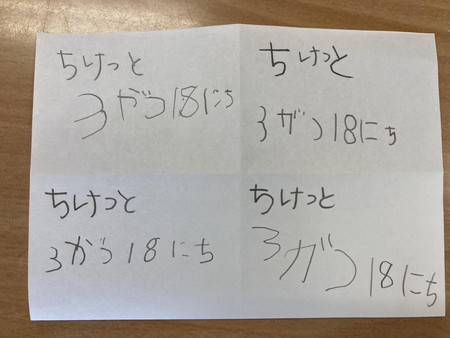 ちけっと
3がつ18にち
ちけっと
3がつ18にち
ちけっと
3がつ18にち
ちけっと
3がつ18にち